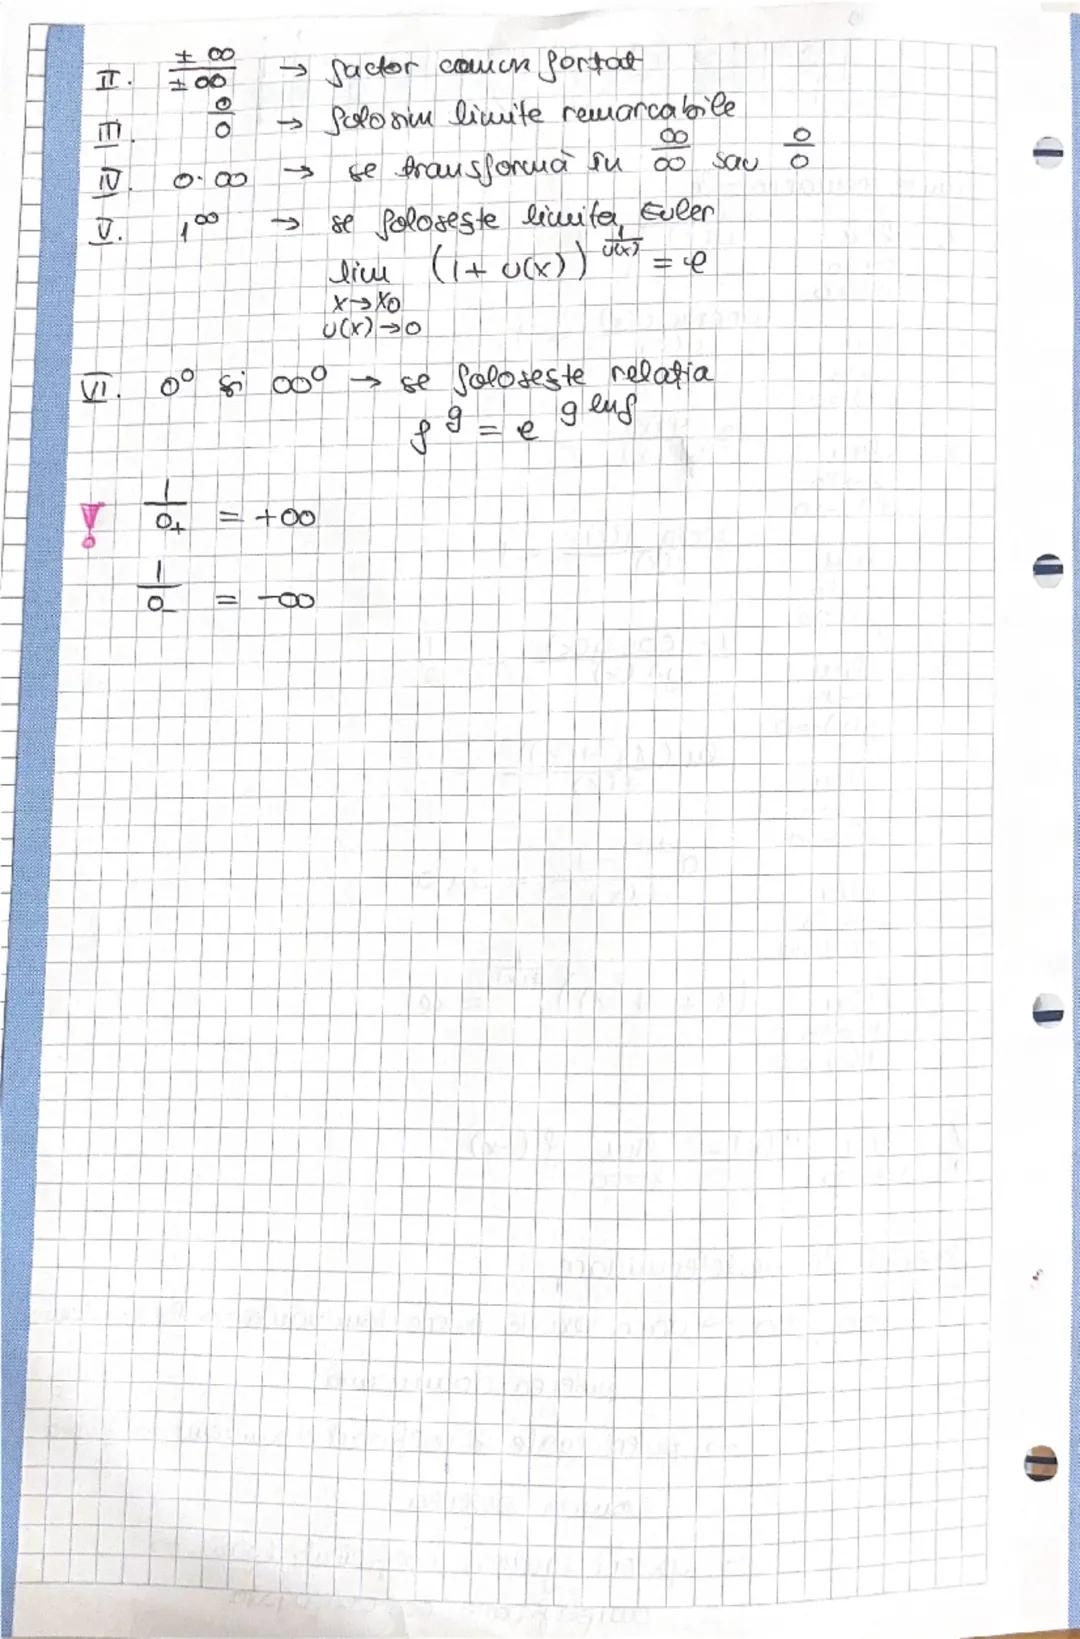 II. ±∞/±∞ → factor comun forțat
III. 0/0 → folosim limite remarcabile
IV. 0·∞ → se transformă în ∞/∞ sau 0/0
V. 1^∞ → se folosește limita Euler
lim (1+u(x))^(1/u(x)) = e
x→x₀
u(x)→0
VI. 0⁰ și ∞⁰ → se folosește relația
f^g = e^(g lnf)
! 1/0₊ = +∞
1/0₋ = -∞